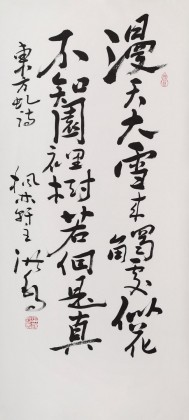 漫天大雪来觸處似花
不知園裡樹若個是真
東方虬詩
楓林軒主洪